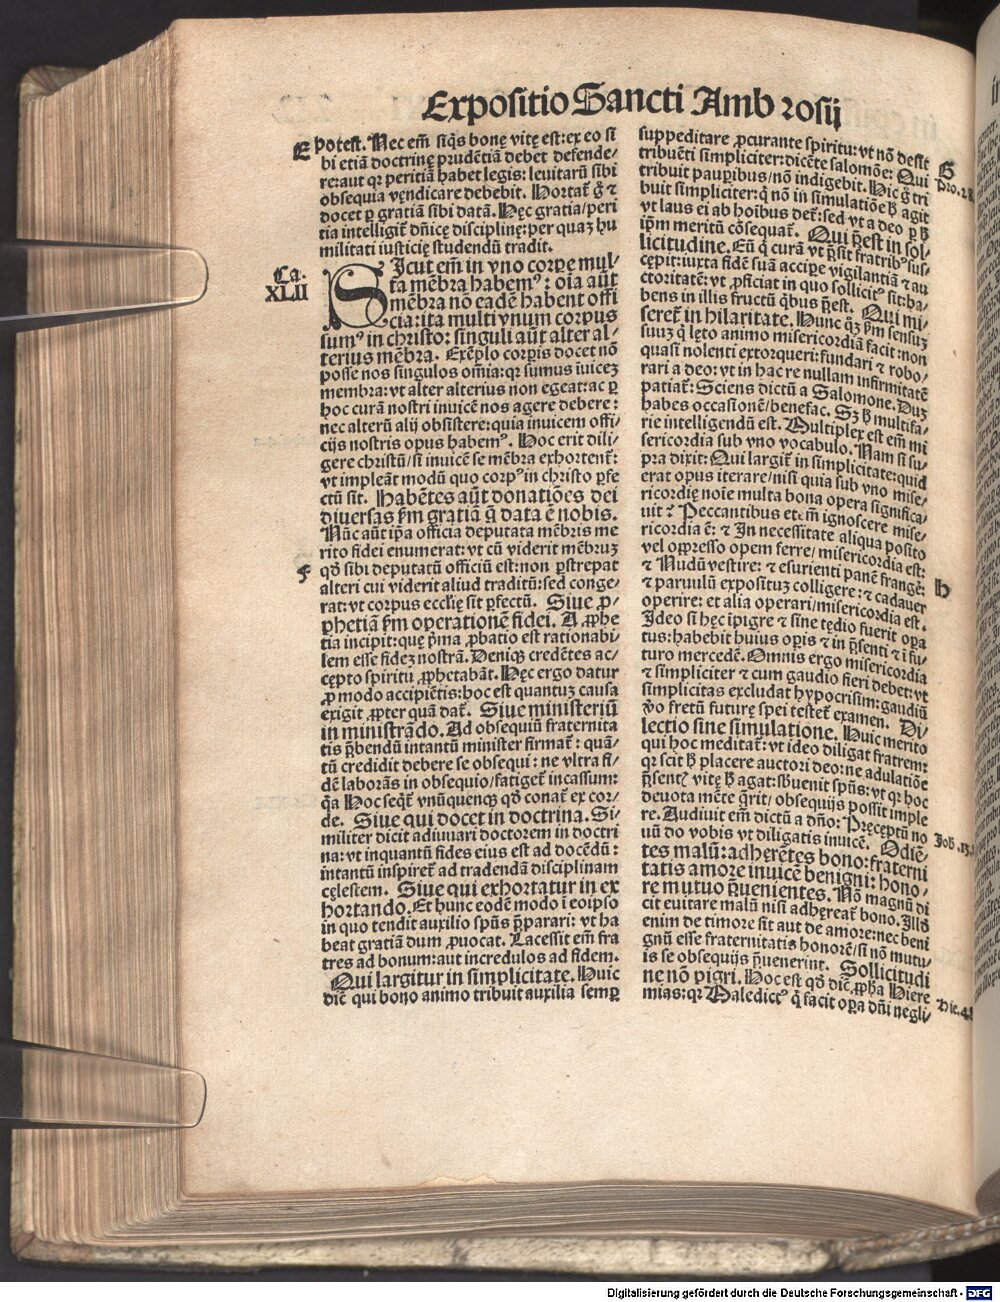 Expositio Sancti Ambrosij
E
potest. Nec em̄ siq̇s bonę vitę est: ex eo si
bi etiā doctrinę prudētiā debet defende⸗
re: aut qꝛ peritiā habet legis: leuitarū sibi
obsequia vendicare debebit. Hortat̄ g̊ ⁊
docet ꝑ gratiā sibi datā. Hęc gratia/peri
tia intelligit̄ dn̄icę disciplinę: per quaꝫ hu
militati iusticię studendū tradit.
Ca.
XLII
SIcut em̄ in vno corpe mul⸗
ta mēbra habemꝰ: oīa aūt
mēbra nō eadē habent offi
cia: ita multi vnum corpus
sumꝰ in christo: singuli aūt alter al⸗
terius mēbra. Exēplo corꝑis docet nō
posse nos singulos om̄ia: qꝛ sumus iuiceꝫ
membra: vt alter alterius non egeat: ac ꝑ
hoc curā nostri inuicē nos agere debere:
nec alterū alij obsistere: quia inuicem offi
cijs nostris opus habemꝰ. Hoc erit dili⸗
gere christū/si inuicē se mēbra exhortent̄:
vt impleāt modū quo corpꝰ in christo ꝑfe
ctū sit. Habētes aūt donatiōes dei
diuersas ẜm gratiā q̄ data ē nobis.
Nūc aūt ip̄a officia deputata mēbris me
rito fidei enumerat: vt cū viderit mēbruꝫ
F
qd̄ sibi deputatū officiū est: non ꝑstrepat
alteri cui viderit aliud traditū: sed conge⸗
rat: vt corpus ecclīę sit ꝑfectū. Siue ꝓ⸗
phetiā ẜm operationē fidei. A ꝓphe
tia incipit: que p̄ma ꝓbatio est rationabi⸗
lem esse fideꝫ nostrā. Deniqꝫ credētes ac⸗
cępto spiritu ꝓphetabāt. Hęc ergo datur
ꝓ modo accipiētis: hoc est quantuꝫ causa
exigit ꝓpter quā dat̄. Siue ministeriū
in ministrādo. Ad obsequiū fraternita
tis p̄bendū intantū minister firmat̄: quā⸗
tū credidit debere se obsequi: ne vltra fi⸗
dē laborās in obsequio/fatiget̄ incassum:
q̄a hoc seqt̄ vnūquenqꝫ qd̄ conat̄ ex cor⸗
de. Siue qui docet in doctrina. Si⸗
militer dicit adiuuari doctorem in doctri
na: vt inquantū fides eius est ad docēdū:
intantū inspiret̄ ad tradendā disciplinam
cęlestem. Siue qui exhortatur in ex
hortando. Et hunc eodē modo i eoipso
in quo tendit auxilio spūs p̄parari: vt ha
beat gratiā dum ꝓuocat. Lacessit em̄ fra
tres ad bonum: aut incredulos ad fidem.
Qui largitur in simplicitate. Huic
dic̄ qui bono animo tribuit auxilia semꝑ
suppeditare ꝓcurante spiritu: vt nō desit
tribuēti simpliciter: dicēte salomōe: Qui
G
Pro. 28.
tribuit pauꝑibus/nō indigebit. Hic g̊ tri
buit simpliciter: q̇ nō in simulatiōe ħ agit
vt laus ei ab hoībus det̄: sed vt a deo ꝑ ħ
ip̄m meritū cōsequat̄. Qui p̄est in sol⸗
licitudine. Eū q̇ curā vt p̄sit fratribꝰ sus⸗
cępit: iuxta fidē suā accipe vigilantiā ⁊ au
ctoritatē: vt ꝓficiat in quo sollicitꝰ sit: ha⸗
bens in illis fructū q̇bus p̄est. Qui mi⸗
seret̄ in hilaritate. Hunc q̇ꝫ ẜm sensuꝫ
suuꝫ q̇ lęto animo misericordiā facit: non
quasi nolenti extorqueri: fundari ⁊ robo⸗
rari a deo: vt in hac re nullam infirmitatē
patiat̄: Sciens dictū a Salomone. Duꝫ
habes occasionē/benefac. Sꝫ ħ multifa⸗
rie intelligendū est. Multiplex est em̄ mi
sericordia sub vno vocabulo. Nam si su⸗
pra dixit: Qui largit̄ in simplicitate: quid
erat opus iterare/nisi quia sub vno mise⸗
ricordię noīe multa bona opera significa⸗
uit? Peccantibus etem̄ ignoscere mise⸗
ricordia ē: ⁊ In necessitate aliqua posito
vel oppresso opem ferre/misericordia est:
⁊ Nudū vestire: ⁊ esurienti panē frangē:
H
⁊ paruulū expositꝫ colligere: ⁊ cadauer
operire: et alia operari/misericordia est.
Ideo si hęc īpigre ⁊ sine tędio fuerit oꝑa
tus: habebit huius oꝑis ⁊ in p̄senti ⁊ ī fu⸗
turo mercedē. Omnis ergo misericordia
⁊ simpliciter ⁊ cum gaudio fieri debet: vt
simplicitas excludat hypocrisim: gaudiū
v̊o fretū futurę spei testet̄ examen. Di⸗
lectio sine simulatione. Huic merito
qui hoc meditat̄: vt ideo diligat fratrem:
qꝛ scit ħ placere auctori deo: ne adulatiōe
p̄sentꝭ vitę ħ agat: s̄buenit spūs: vt qꝛ hoc
deuota mēte q̄rit/obsequijs possit imple
re. Audiuit em̄ dictū a dn̄o: Pręceptū no
Joh. 13.
uū do vobis vt diligatis inuicē. Odiē⸗
tes malū: adherētes bono: fraterni
tatis amore inuicē benigni: hono⸗
re mutuo p̄uenientes. Nō magnū di
cit euitare malū nisi adhęreat̄ bono. Illd̄
enim de timore sit aut de amore: nec beni
gnū esse fraternitatis honorē/si nō mutu⸗
is se obsequijs p̄uenerint. Sollicitudi
ne nō pigri. Hoc est qd̄ dic̄ ꝓpha Hiere
Hie. 48.
mias: qꝛ Maledictꝰ q̇ facit oꝑa dn̄i negli⸗
Digitalisierung gefördert durch die Deutsche Forschungsgemeinschaft - DFG